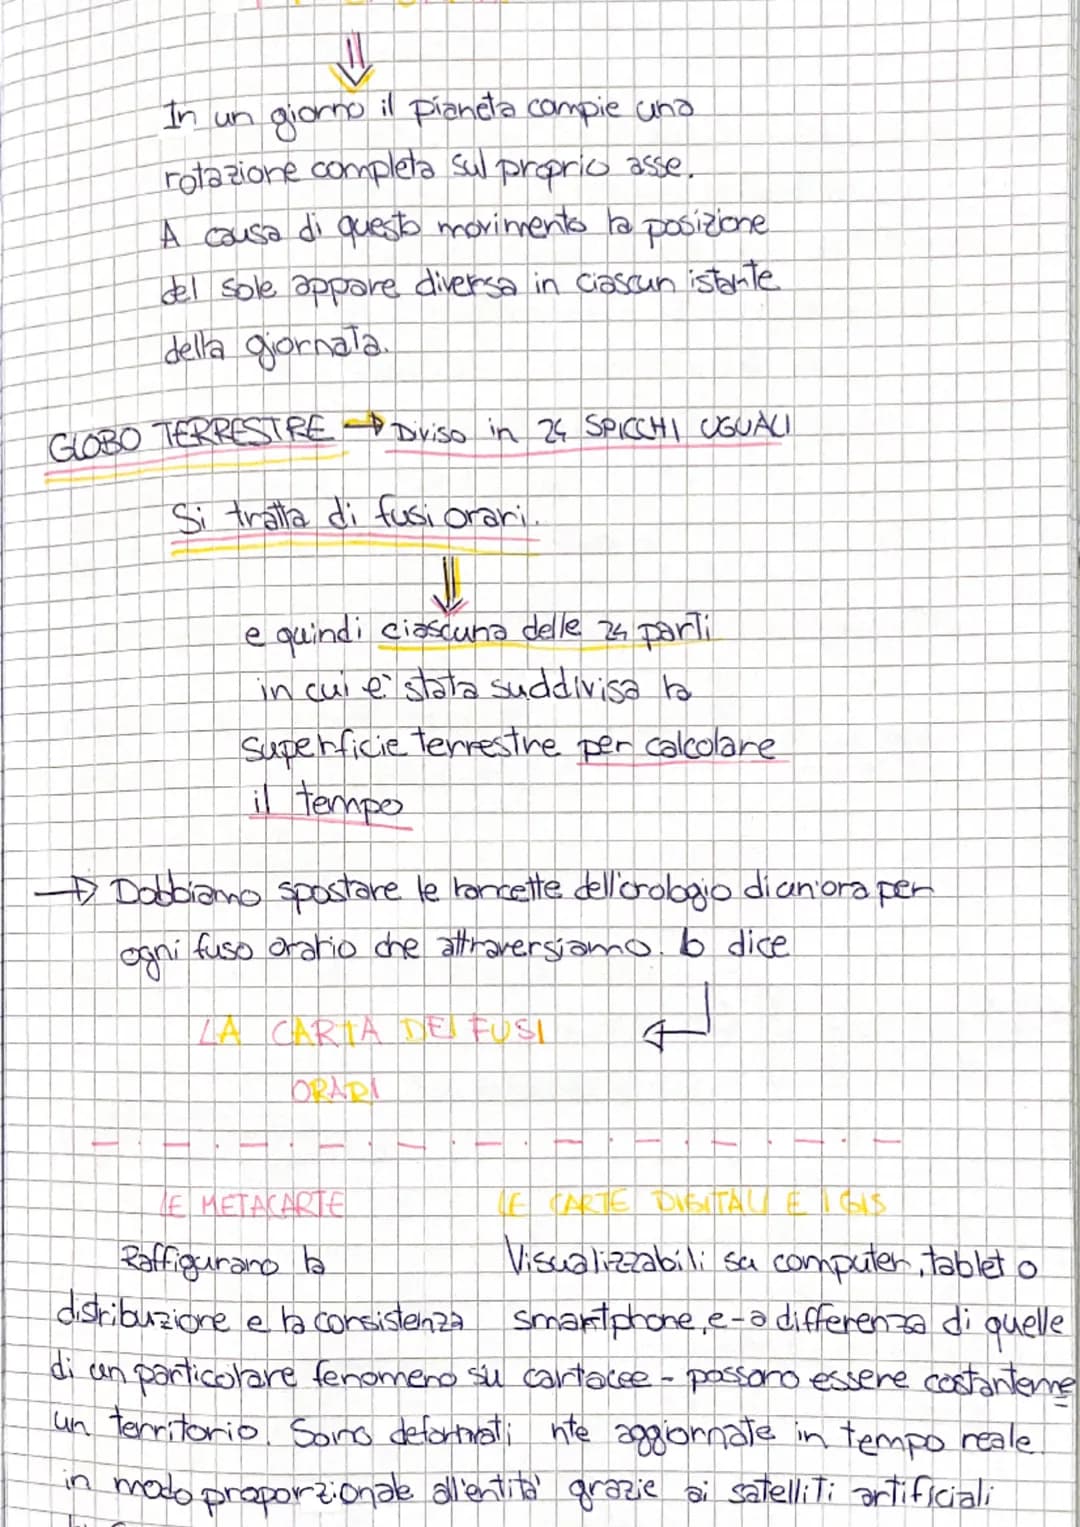 In un giorno il pianeta compie una
rotazione completa sul proprio asse.
A causa di questo movimento la posizione
del sole appare diversa in ciascun istante
della giornata.
GLOBO TERRESTRE → Diviso in 24 SPICCHI UGUALI
Si tratta di fusi orari.
e quindi ciascuna delle 24 parti
in cui e' stata suddivisa la
superficie terrestre per calcolare
il tempo
→ Dobbiamo spostare le lancette dell'orologio di un'ora per
ogni fuso orario che attraversiamo. lo dice
LA CARTA DEI FUSI
ORARI
LE METACARTE
Raffigurano la
distribuzione e la consistenza
di un particolare fenomeno su
un territorio. Sono deformati
in modo proporzionale all'entita'
LE CARTE DIGITALI E I GIS
Visualizzabili su computer, tablet o
smartphone, e - a differenza di quelle
cartacee - possono essere costanteme
nte aggiornate in tempo reale
grazie ai satelliti artificiali